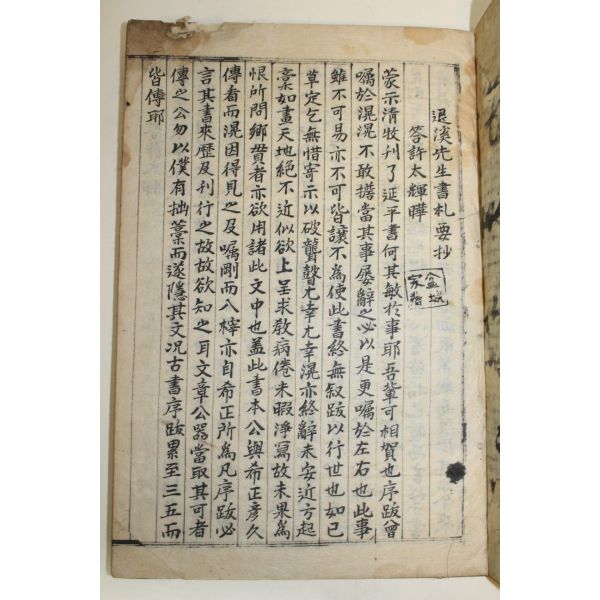 退溪先生書札要抄
答許太輝曄
蒙示清牧刊了延平書何其敏於事耶吾輩可相賀也序跋曾
囑於滉滉不敢擔當其事屡辭之必以是更囑於左右也此事
雖不可易亦不可皆讓不為使此書終無叙跋以行世也如已
草定乞無惜寄示以破聾瞽尤幸尤幸滉亦終辭未安近方起
稾如畫天地絶不近似欲上呈求敎病倦未暇淨寫故未果為
恨所問鄉賢者亦欲用諸此文中也盖此書本公與希正彦久
傳看而滉因得見之及囑剛而入榟亦自希正所為凡序跋必
言其書來歷及刊行之故故欲知之耳文章公器當取其可者
傳之公勿以僕有拙稾而遂隱其文况古書序跋累至三五而
皆傳耶